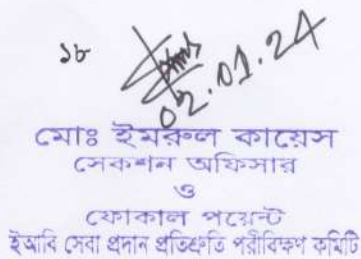 ১৮
02.01.24
মোঃ ইমরুল কায়েস
সেকশন অফিসার
ও
ফোকাল পয়েন্ট
ইআবি সেবা প্রদান প্রতিশ্রুতি পরীবিক্ষণ কমিটি